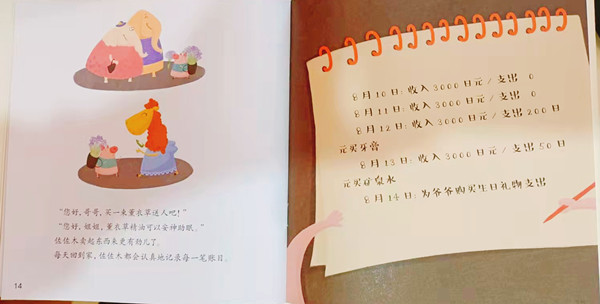 “您好，哥哥，买一束薰衣草送人吧！”
“您好，姐姐，薰衣草精油可以安神助眠。”
佐佐木卖起东西来更有劲儿了。
每天回到家，佐佐木都会认真地记录每一笔账目。
14
8月10日：收入3000日元/支出 0
8月11日：收入3000日元/支出 0
8月12日：收入3000日元/支出200日
元买牙膏
8月13日：收入3000日元/支出50日
元买矿泉水
8月14日：为爷爷购买生日礼物支出